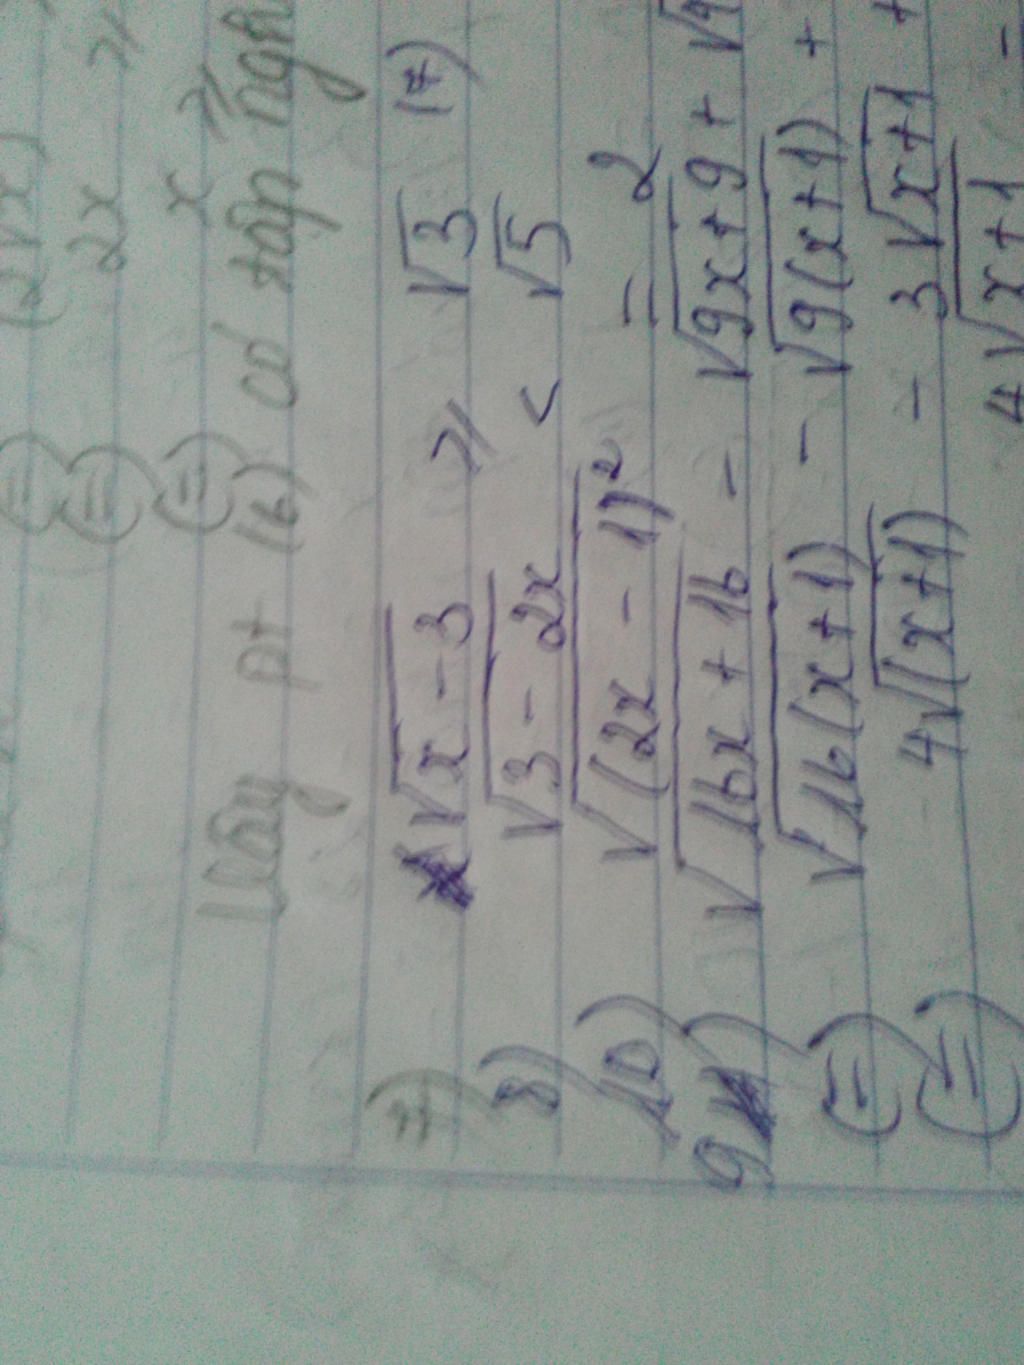 (2√x)
(=) 2x ≥
(=) x ≥
Vậy pt (6) có tập ngh
7) √x - 3 ≥ √3 (7)
8) √3 - 2x < √5
10) √(2x - 1)² = 2
9) √16x + 16 - √9x + 9 + √
(=) √16(x + 1) - √9(x + 1) +
(=) 4√(x + 1) - 3√x + 1 +
4√x + 1 -